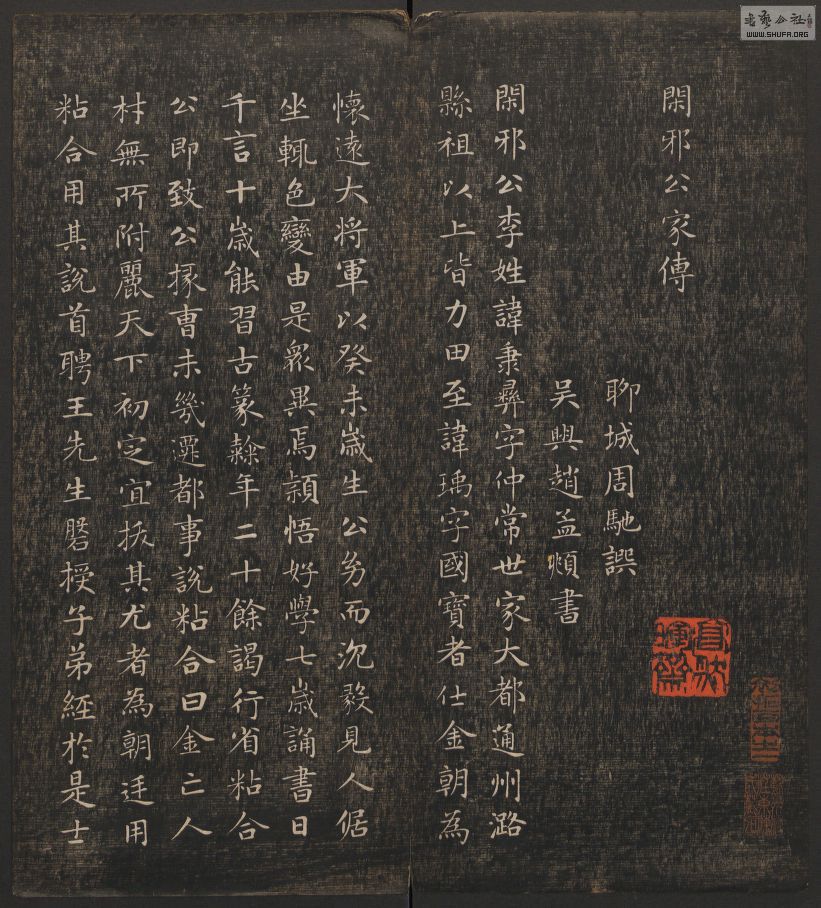 閑邪公家傳
聊城周馳譔
吴興趙孟頫書
閑邪公李姓諱秉彝字仲常世家大都通州潞
縣祖以上皆力田至諱瑀字國寶者仕金朝為
懷遠大將軍以癸未歲生公㓜而沉毅見人倨
坐輒色變由是衆異焉頴悟好學七歲誦書日
千言十歲能習古篆繇年二十餘謁行省粘合
公即致公掾曹未幾遷都事說粘合曰金亡人
材無所附麗天下初定宜拔其尤者為朝廷用
粘合用其說首聘王先生磐授子弟經於是士
WWW.SHUFA.ORG